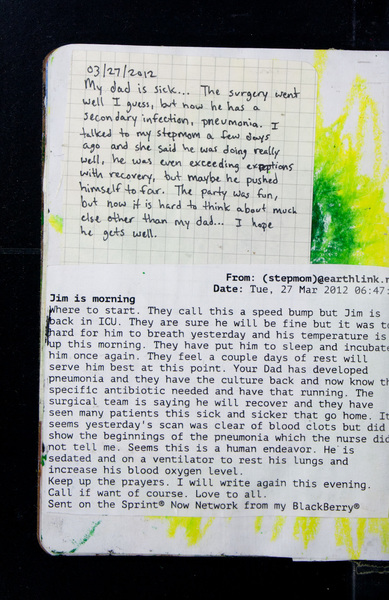 03/27/2012
My dad is sick... The surgery went
well I guess, but now he has a
secondary infection, pneumonia. I
talked to my stepmom a few days
ago and she said he was doing really
well, he was even exceeding
with recovery, but maybe he pushed
himself to far. The party was fun,
but now it is hard to think about much
else other than my dad... I hope
he gets well.
From: (stepmom)@earthlink.n
Date: Tue, 27 Mar 2012 06:47:
Jim is morning
Where to start. They call this a speed bump but Jim is
back in ICU. They are sure he will be fine but it was to
hard for him to breath yesterday and his temperature is
up this morning. They have put him to sleep and incubate
him once again. They feel a couple days of rest will
serve him best at this point. Your Dad has developed
pneumonia and they have the culture back and now know th
specific antibiotic needed and have that running. The
surgical team is saying he will recover and they have
seen many patients this sick and sicker that go home. It
seems yesterday's scan was clear of blood clots but did
show the beginnings of the pneumonia which the nurse did
not tell me. Seems this is a human endeavor. He is
sedated and on a ventilator to rest his lungs and
increase his blood oxygen level.
Keep up the prayers. I will write again this evening.
Call if want of course. Love to all.
Sent on the Sprint® Now Network from my BlackBerry®